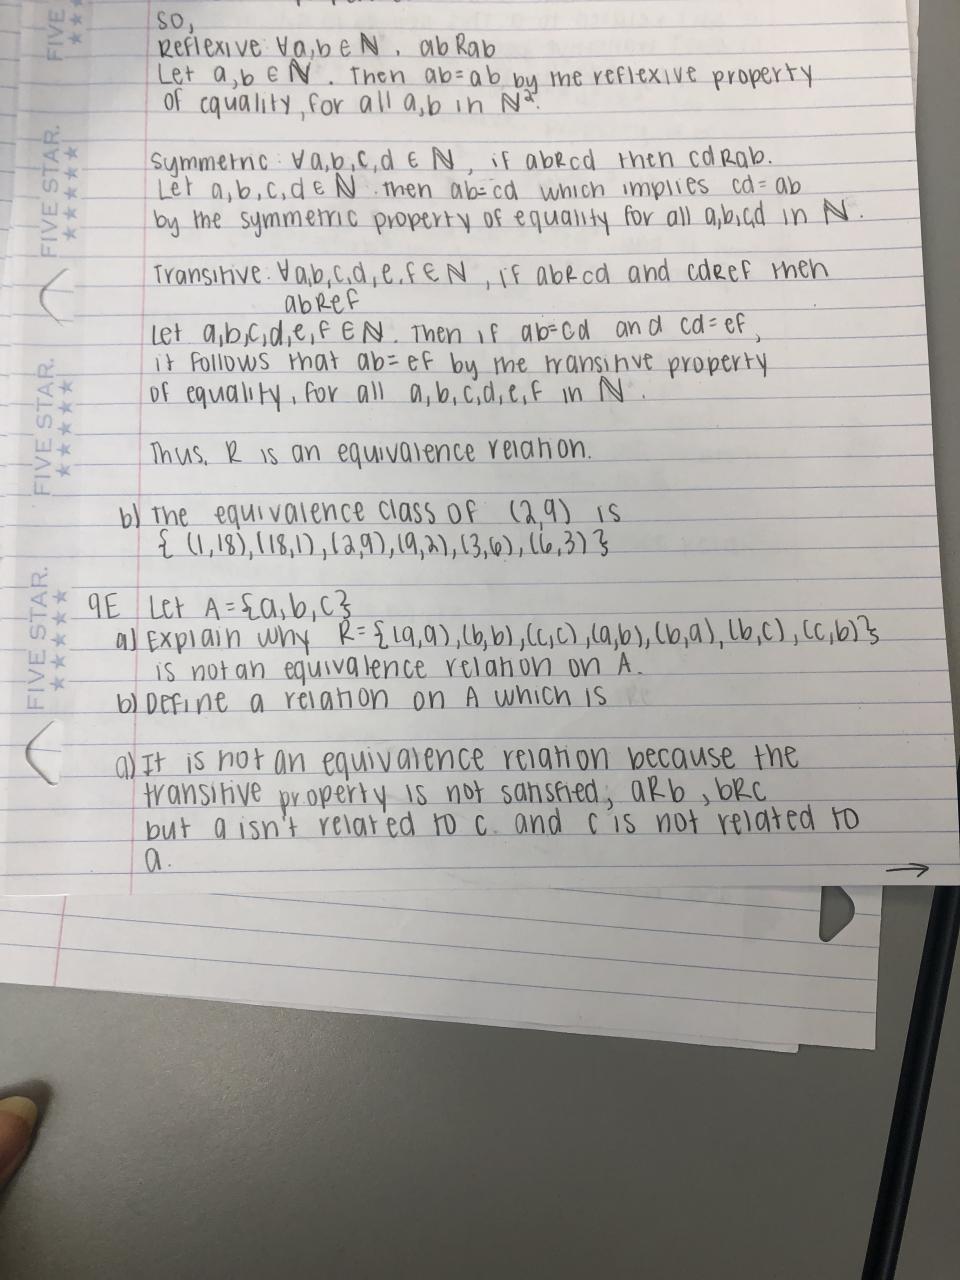 so,
Reflexive: ∀a,b ∈ ℕ, abRab
Let a,b ∈ ℕ. Then ab=ab by the reflexive property
of equality, for all a,b in ℕ².
Symmetric: ∀a,b,c,d ∈ ℕ, if abRcd then cdRab.
Let a,b,c,d ∈ ℕ. then ab=cd which implies cd=ab
by the symmetric property of equality for all a,b,c,d in ℕ.
Transitive: ∀a,b,c,d,e,f ∈ ℕ, if abRcd and cdRef then
abRef
Let a,b,c,d,e,f ∈ ℕ. Then if ab=cd and cd=ef,
it follows that ab=ef by the transitive property
of equality, for all a,b,c,d,e,f in ℕ.
Thus, R is an equivalence relation.
b) The equivalence class of (2,9) is
{ (1,18),(18,1),(2,9),(9,2),(3,6),(6,3)}
9E Let A={a,b,c}
a) Explain why R={(a,a),(b,b),(c,c),(a,b),(b,a),(b,c),(c,b)}
is not an equivalence relation on A.
b) Define a relation on A which is
a) It is not an equivalence relation because the
transitive property is not satisfied; aRb, bRc
but a isn't related to c. and c is not related to
a.
→
FIVE
FIVE STAR.
FIVE STAR.
FIVE STAR.